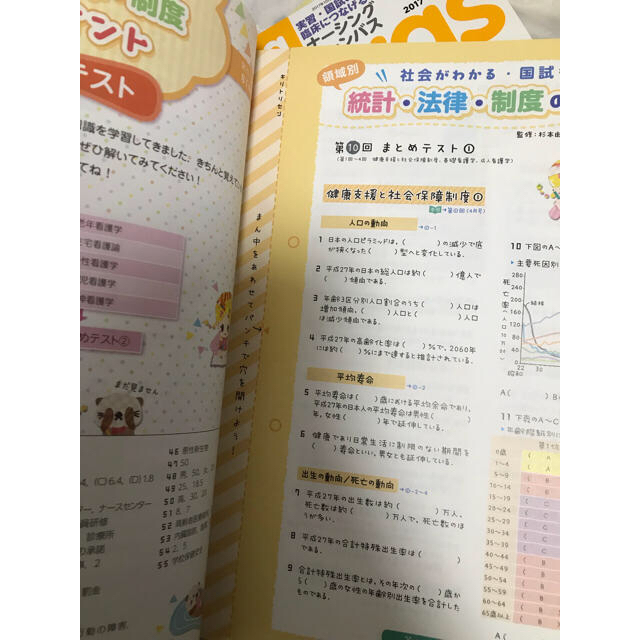 実習・国試
臨床につなげる
ナーシング
ンバス
2017
制度
ント
テスト
識を学習してきました。きちんと覚えてい
ぜひ解いてみてください!
てね!
年看護学
宅看護論
性看護学
児看護学
神看護学
めテスト②
まだ見ません
46 悪性新生物
47 50
49 25、
50 30、
51 8、7
54 2、5
55 学校保健安全
6.4、(D)1.8
ー、ナースセンター
員研修
診療所
の承諾
罰金
動の障害
キリトリセン
まん中をあわせてパンチで穴を開けよう!
領域別
社会がわかる・国試
統計・法律・制度の
監修:杉本由
第10回 まとめテスト①
(第1回~4回 健康支援と社会保障制度、基礎看護学、成人看護学)
健康支援と社会保障制度①
→第①回(4月号)
人口の動向
→①-1
1 日本の人口ピラミッドは、( )の減少で底
が狭くなった( )型へと変化している。
2 平成27年の日本の総人口は約( )億人で
( )傾向である。
3 年齢3区分別人口割合のうち( )人口は
増加傾向、( )人口と( )人口
は減少傾向である。
4 平成27年の高齢化率は( )%で、2060年
には約( )%にまで達すると推計されている。
平均寿命
→①-2
5 平均寿命は( )歳における平均余命であり、
平成27年の日本人の平均寿命は男性( )
年、女性( )年で延伸している。
6 健康であり日常生活に制限のない期間を
( )寿命といい、男女とも延伸している。
出生の動向/死亡の動向
→①-2~4
7 平成27年の出生数は約( )万人、
死亡数は約( )万人で、死亡数のほ
うが多い。
8 平成27年の合計特殊出生率は( )
である。
9 合計特殊出生率とは、その年次の( )歳か
ら( )歳の女性の年齢別出生率を合計した
ものである。
10 下図のA~
主要死因別
280
240
200
160
120
80
40
0
死亡率(人口10万対)
結核
昭和22
30
A(
B(
11 下表のA~C
年齢階級別
第1
0歳 ( A
1~4 ( A
5~9 ( B
10~14 ( B
15~19 ( C
20~24 ( C
25~29 ( C
30~34 ( C
35~39 ( C
40~44 ( B
45~49 ( B
50~54 ( B
55~59 ( B
60~64 ( B
65歳以上 ( B
A(